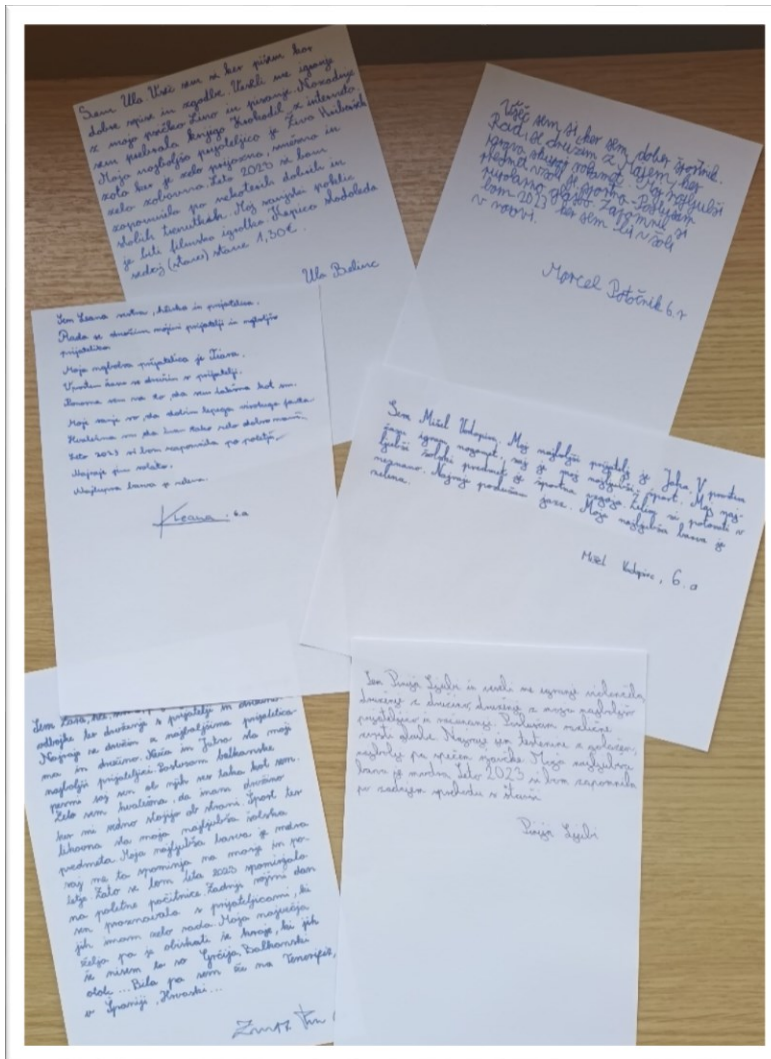 Sem Ula. Všeč sem si ker pišem kar
dobre spise in zgodbe. Veseli me igranje
z mojo psičko Luno in pisanje. Nazadnje
sem prebrala knjigo Krokodil z interneta.
Moja najboljša prijateljica je Živa Hribaršek
zato ker je zelo prijazna, smešna in
zelo zabavna. Leto 2023 si bom
zapomnila po nekaterih dobrih in
slabih trenutkih. Moj sanjski poklic
je biti filmska igralka. Kepica sladoleda
sedaj (danes) stane 1,30€.
Ula Belinc
Všeč sem si ker sem dober športnik.
Rad se družim z Majem ker
igrava skupaj nogomet. Moj najljubši
predmet v šoli je športna. Poslušam
popularno glasbo. Zapomnil si
bom 2023 ker sem šel v šolo
v naravi.
Marcel Potočnik 6. r
Sem Leana vestna, hitra in prijateljica.
Rada se družim z mojimi prijatelji in najboljšo
prijateljico
Moja najboljša prijateljica je Tiara.
V prostem času se družim s prijatelji.
Ponosna sem na to da sem takšna kot sem.
Moje sanje so da dobim lepega visokega fanta
Hvaležna sem da imam tako zelo dobro mamo
Leto 2023 si bom zapomnila po poletju.
Najraje jem solato.
Najljubša barva je rdeča.
Kleana 6.a
Sem Mišel Vodopivc. Moj najboljši prijatelj je Jaka. V prostem
času igram nogomet, saj je moj najljubši šport. Moj naj-
ljubši šolski predmet je športna vzgoja. Želim si potovati v
neznano. Najraje poslušam jazz. Moja najljubša barva je
zelena.
Mišel Vodopivc, 6. a
Sem Zara,
odbojke ter druženje s prijatelji in družino.
Najraje se družim z najboljšima prijateljica-
ma in družino. Kaja in Jutra sta moji
najboljši prijateljici. Poslušam balkanske
pesmi saj sem ob njih vso tako kot sem.
Zelo sem hvaležna, da imam družino
ker mi vedno stojijo ob strani. Šport ter
likovna sta moja najljubša šolska
predmeta. Moja najljubša barva je modra
saj me ta spominja na morje in po-
letje. Zato se bom leta 2023 spominjala
na poletne počitnice. Zadnji rojstni dan
sem praznovala s prijateljicami, ki
jih imam zelo rada. Moja največja
želja pa je obiskati še kraje, ki jih
še nisem to so Grčija, Balkanski
otok... Bila pa sem že na Tenerifeih,
v Španiji, Hrvaški...
Sem Pinija Ljubi in veseli me igranje violončela,
druženje z družino, druženje z mojo najboljšo
prijateljico in risanje. Poslušam različne
vrste glasbe. Najraje jem testenine z golažem,
najbolj pa špečen njoke. Moja najljubša
barva je modra. Leto 2023 si bom zapomnila
po zadnjem sprehodu s Starši.
Pinija Ljubi